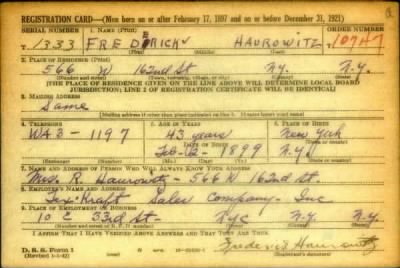 REGISTRATION CARD—(Men born on or after February 17, 1897 and on or before December 31, 1921)
SERIAL NUMBER 1. NAME (Print) ORDER NUMBER
1333 FREDERICK HAUROWITZ 10747
(First) (Middle) (Last)
2. PLACE OF RESIDENCE (Print)
566 W 162nd St N.Y. N.Y.
(Number and street) (Town, township, village, or city) (County) (State)
[THE PLACE OF RESIDENCE GIVEN ON THE LINE ABOVE WILL DETERMINE LOCAL BOARD
JURISDICTION; LINE 2 OF REGISTRATION CERTIFICATE WILL BE IDENTICAL]
3. MAILING ADDRESS
Same
[Mailing address if other than place indicated on line 2. If same insert word same]
4. TELEPHONE 5. AGE IN YEARS 6. PLACE OF BIRTH
WA3-1197 43 years New York
DATE OF BIRTH (Town or county)
Feb 12 1899 N.Y.
(Exchange) (Number) (Mo.) (Day) (Yr.) (State or country)
7. NAME AND ADDRESS OF PERSON WHO WILL ALWAYS KNOW YOUR ADDRESS
Mrs. R. Haurowitz - 566 W 162nd St.
8. EMPLOYER'S NAME AND ADDRESS
Tex-Kraft Sales Company Inc
9. PLACE OF EMPLOYMENT OR BUSINESS
10 E 33rd St- NYC N.Y. N.Y.
(Number and street or R. F. D. number) (Town) (County) (State)
I AFFIRM THAT I HAVE VERIFIED ABOVE ANSWERS AND THAT THEY ARE TRUE.
D. S. S. Form 1
(Revised 1-1-42)
Frederick Haurowitz